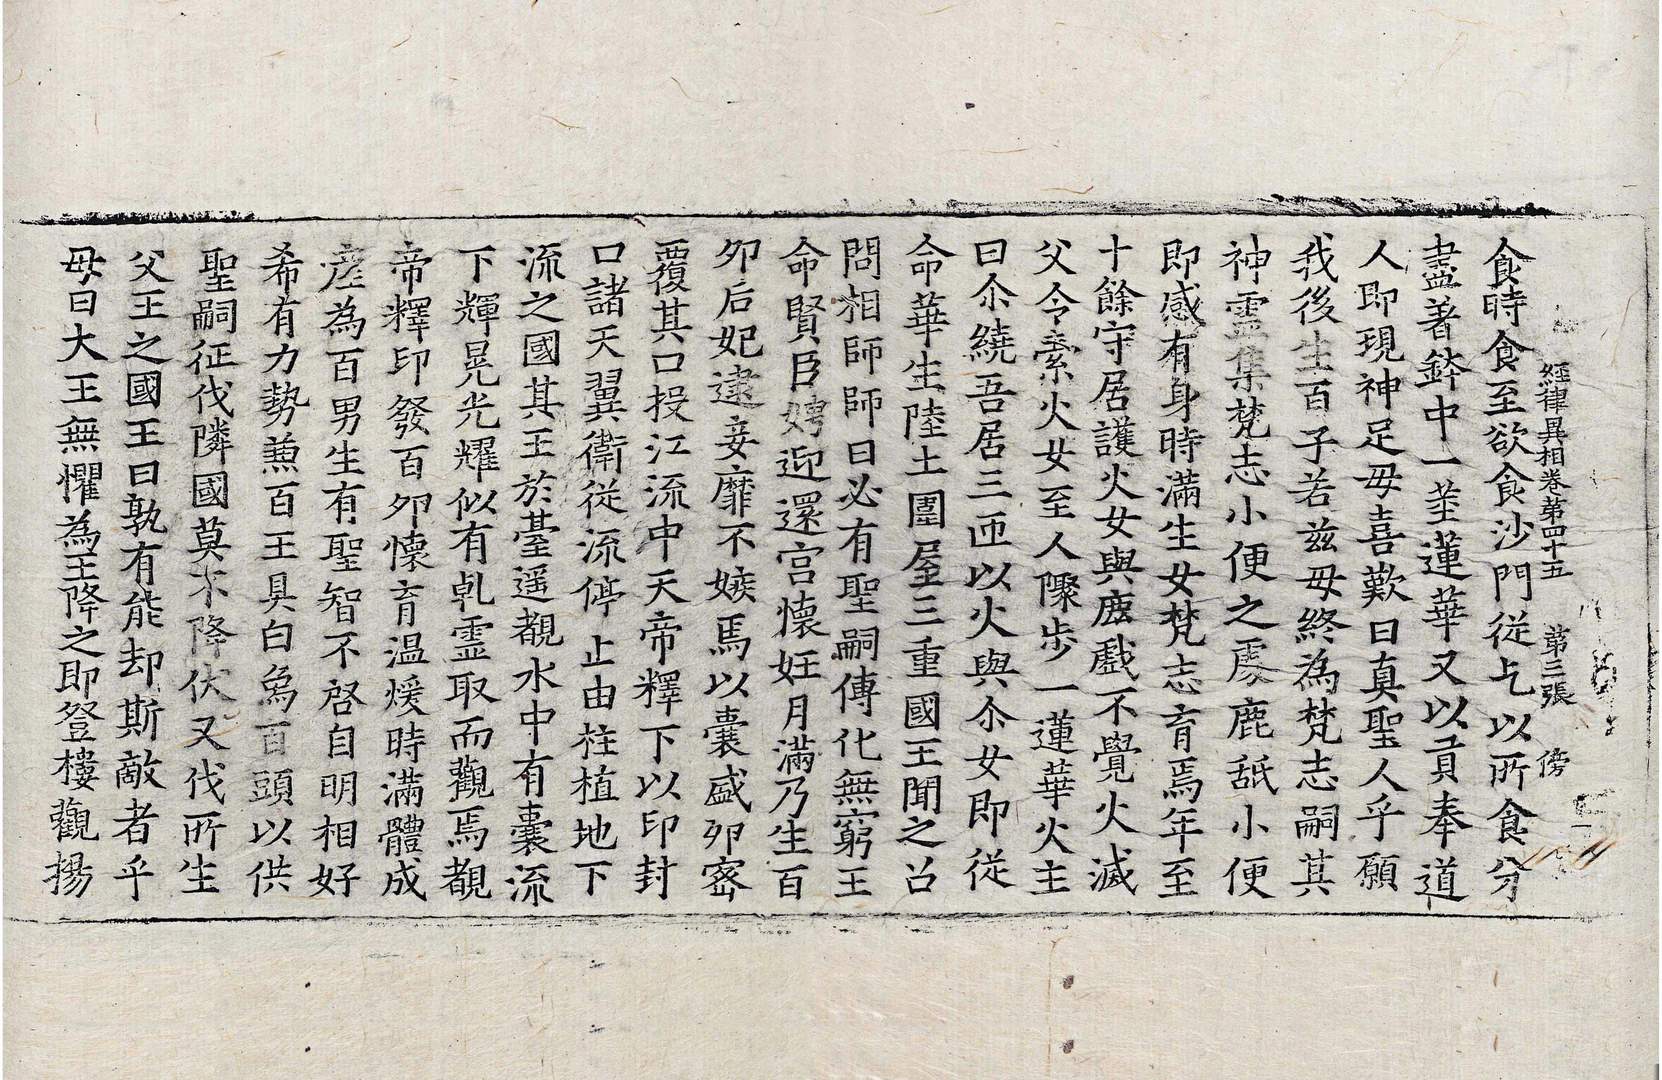 經律異相卷第四十五 第三張 傍
食時食至欲食沙門從乞以所食分
盡著鉢中一莖蓮華又以貢奉道
人即現神足母喜歎曰真聖人乎願
我後生百子若茲母終為梵志嗣其
神靈集梵志小便之處鹿舐小便
即感有身時滿生女梵志育焉年至
十餘守居護火女與鹿戲不覺火滅
父令索火女至人隰步一蓮華火主
曰尒繞吾居三匝以火與尒女即從
命華生陸土圍屋三重國王聞之召
問相師師曰必有聖嗣傳化無窮王
命賢臣娉迎還宮懷妊月滿乃生百
卵后妃逮妾靡不嫉焉以囊盛卵密
覆其口投江流中天帝釋下以印封
口諸天翼衛從流停止由柱植地下
流之國其王於臺遥覩水中有囊流
下輝晃光耀似有乹靈取而觀焉覩
帝釋印發百卵懷育温煖時滿體成
產為百男生有聖智不啓自明相好
希有力勢兼百王具白象百頭以供
聖嗣征伐隣國莫不降伏又伐所生
父王之國王曰孰有能却斯敵者乎
母曰大王無懼為王降之即登樓觀揚